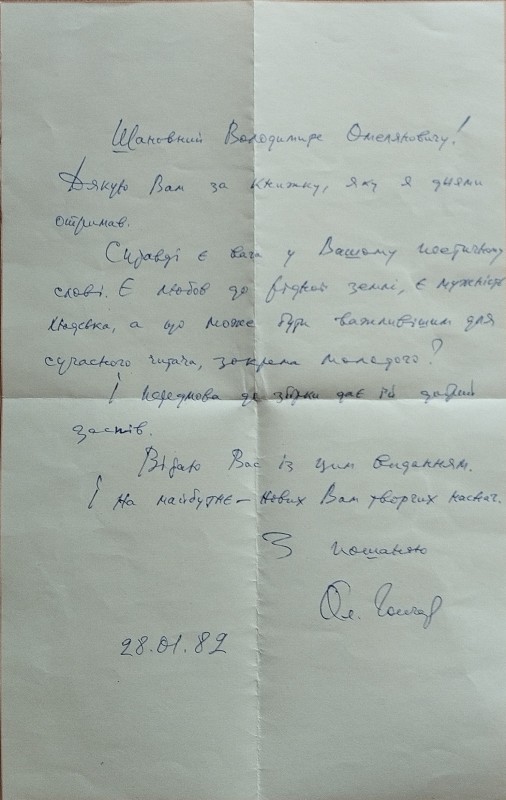 Шановний Володимире Омеляновичу!
Дякую Вам за книжку, яку я днями
отримав.
Справді є вага у Вашому поетичному
слові. Є любов до рідної землі, є мужність
людська, а що може бути важливішим для
сучасного читача, зокрема молодого?
І передмова до збірки дає їй добрий
заспів.
Вітаю Вас із цим виданням.
І на майбутнє — нових Вам творчих наснаг.
З пошаною
Ол. Гончар
28.01.82